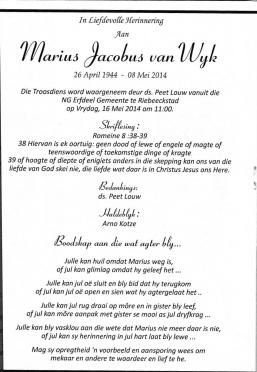 In Liefdevolle Herinnering
Aan
Marius Jacobus van Wyk
26 April 1944 - 08 Mei 2014
Die Troasdiens word waargeneem deur ds. Peet Louw vanuit die
NG Erfdeel Gemeente te Riebeeckstad
op Vrydag, 16 Mei 2014 om 11:00.
Skriflesing :
Romeine 8 :38-39
38 Hiervan is ek oortuig: geen dood of lewe of engele of magte of
teenswoordige of toekomstige dinge of kragte
39 of hoogte of diepte of enigiets anders in die skepping kan ons van die
liefde van God skei nie, die liefde wat daar is in Christus Jesus ons Here.
Bedankings:
ds. Peet Louw
Huldeblyk :
Arno Kotze
Boodskap aan die wat agter bly...
Julle kan huil omdat Marius weg is,
of jul kan glimlag omdat hy geleef het ...
Julle kan jul oë sluit en bly bid dat hy terugkom
of jul kan jul oë open en sien wat hy agtergelaat het ..
Julle kan jul rug draai op môre en in gister bly leef,
of jul kan môre aanpak met gister se mooi as jul dryfkrag ...
Julle kan bly vasklou aan die wete dat Marius nie meer daar is nie,
of jul kan sy herinnering in jul hart laat bly lewe ...
Mag sy opregtheid 'n voorbeeld en aansporing wees om
mekaar en andere te waardeer en lief te he.